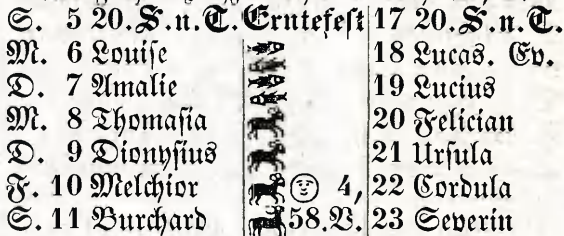 S. 5 20. S. n. T. Erntefeſt 17 20. S. n. T.
M. 6 Louiſe 18 Lucas. Ev.
D. 7 Amalie 19 Lucius
M. 8 Thomaſia 20 Felician
D. 9 Dionyſius 21 Urſula
F. 10 Melchior 4, 22 Cordula
S. 11 Burchard 58. V. 23 Severin